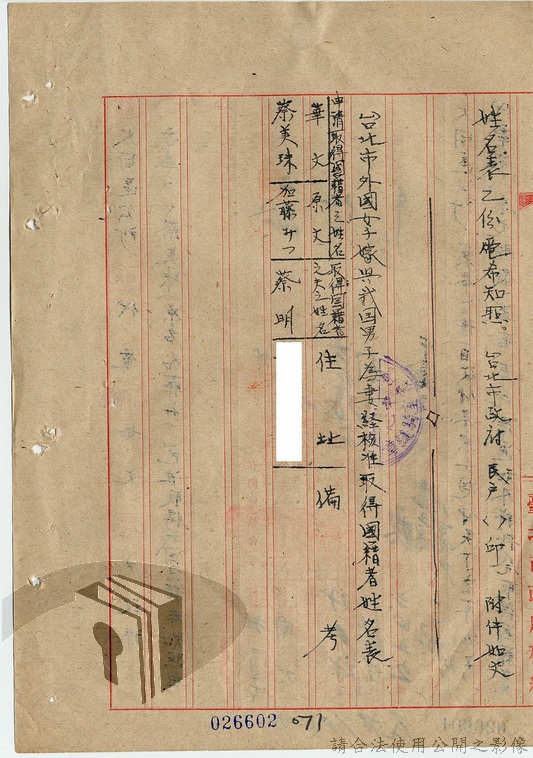 姓名表乙份電希知照。台北市政府民戶( )印。附件如文
台北市外國女子嫁與我国男子為妻經核准取得國籍者姓名表
申請取得國籍者之姓名
華文
原文
取得国籍者之夫之姓名
住址
備考
蔡美珠
加藤
蔡明
026602
071
請合法使用公開之影像